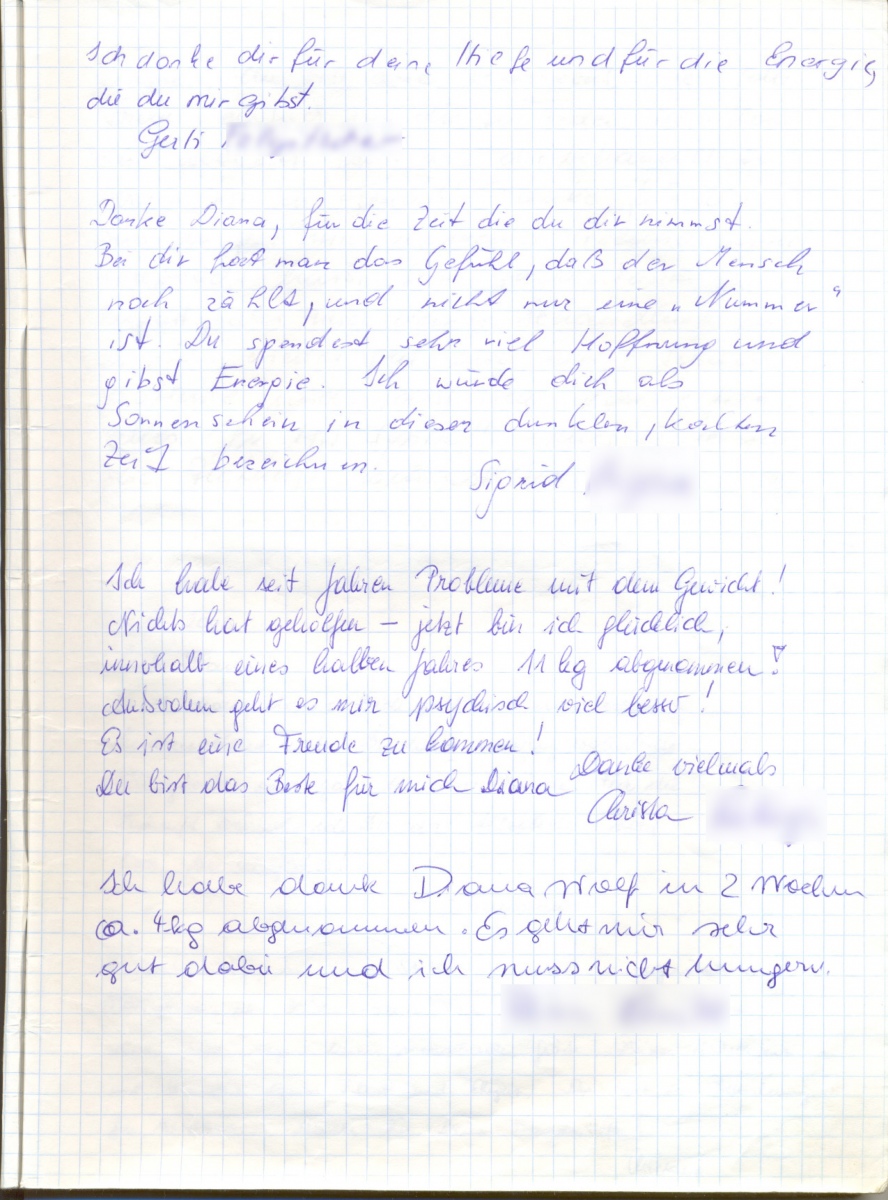 Ich danke dir für deine Hilfe und für die Energie,
die du mir gibst.
Gerti
Danke Diana, für die Zeit die du dir nimmst.
Bei dir hat man das Gefühl, daß der Mensch
noch zählt, und nicht nur eine „Nummer“
ist. Du spendest sehr viel Hoffnung und
gibst Energie. Ich würde dich als
Sonnenschein in dieser dunklen, kalten
Zeit bezeichnen.
Sigrid
Ich habe seit Jahren Probleme mit dem Gewicht!
Nichts hat geholfen – jetzt bin ich glücklich,
innerhalb eines halben Jahres 11 kg abgenommen!
Außerdem geht es mir psychisch viel besser!
Es ist eine Freude zu kommen!
Du bist das Beste für mich Diana
Danke vielmals
Christa
Ich habe dank Diana Wolf in 2 Wochen
ca. 4kg abgenommen. Es geht mir sehr
gut dabei und ich muss nicht hungern.